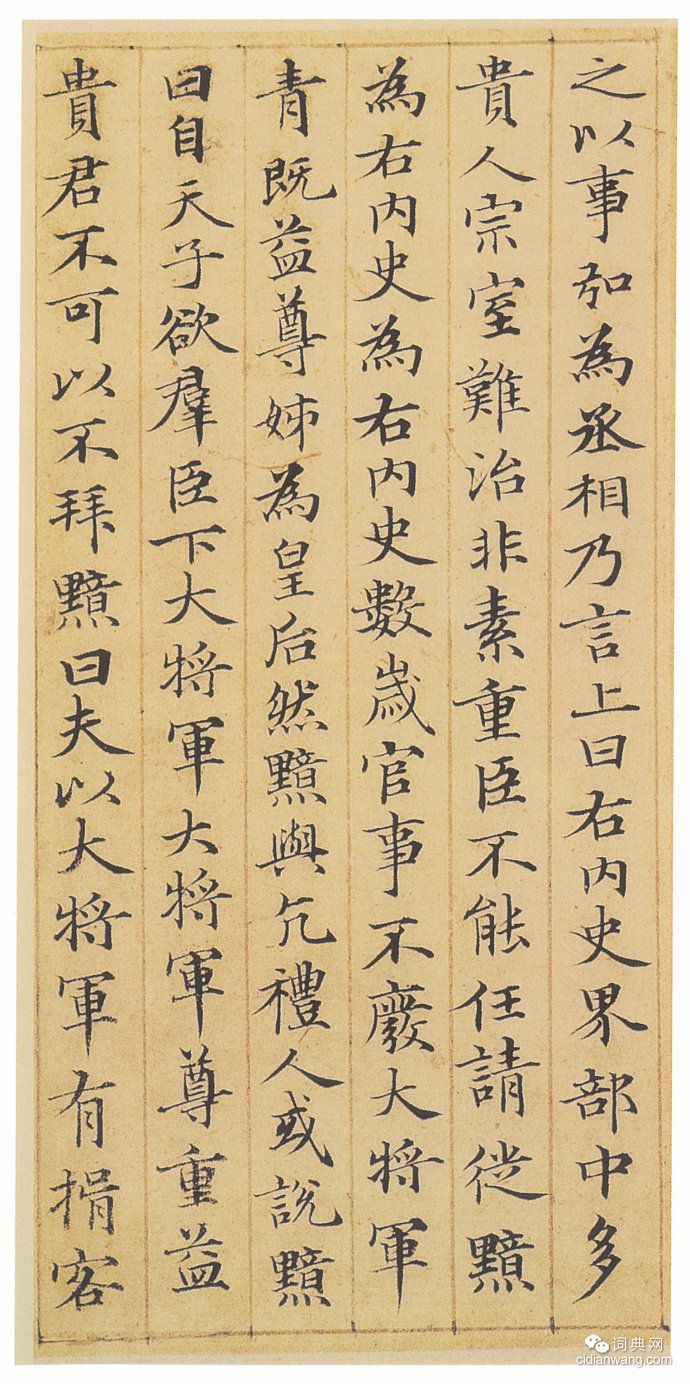 之以事弘為丞相乃言上曰右内史界部中多
貴人宗室難治非素重臣不能任請徙黯
為右内史為右内史數嵗官事不廢大將軍
青既益尊姊為皇后然黯與亢禮人或說黯
曰自天子欲羣臣下大將軍大將軍尊重益
貴君不可以不拜黯曰夫以大將軍有揖客
词典网
cidianwang.com